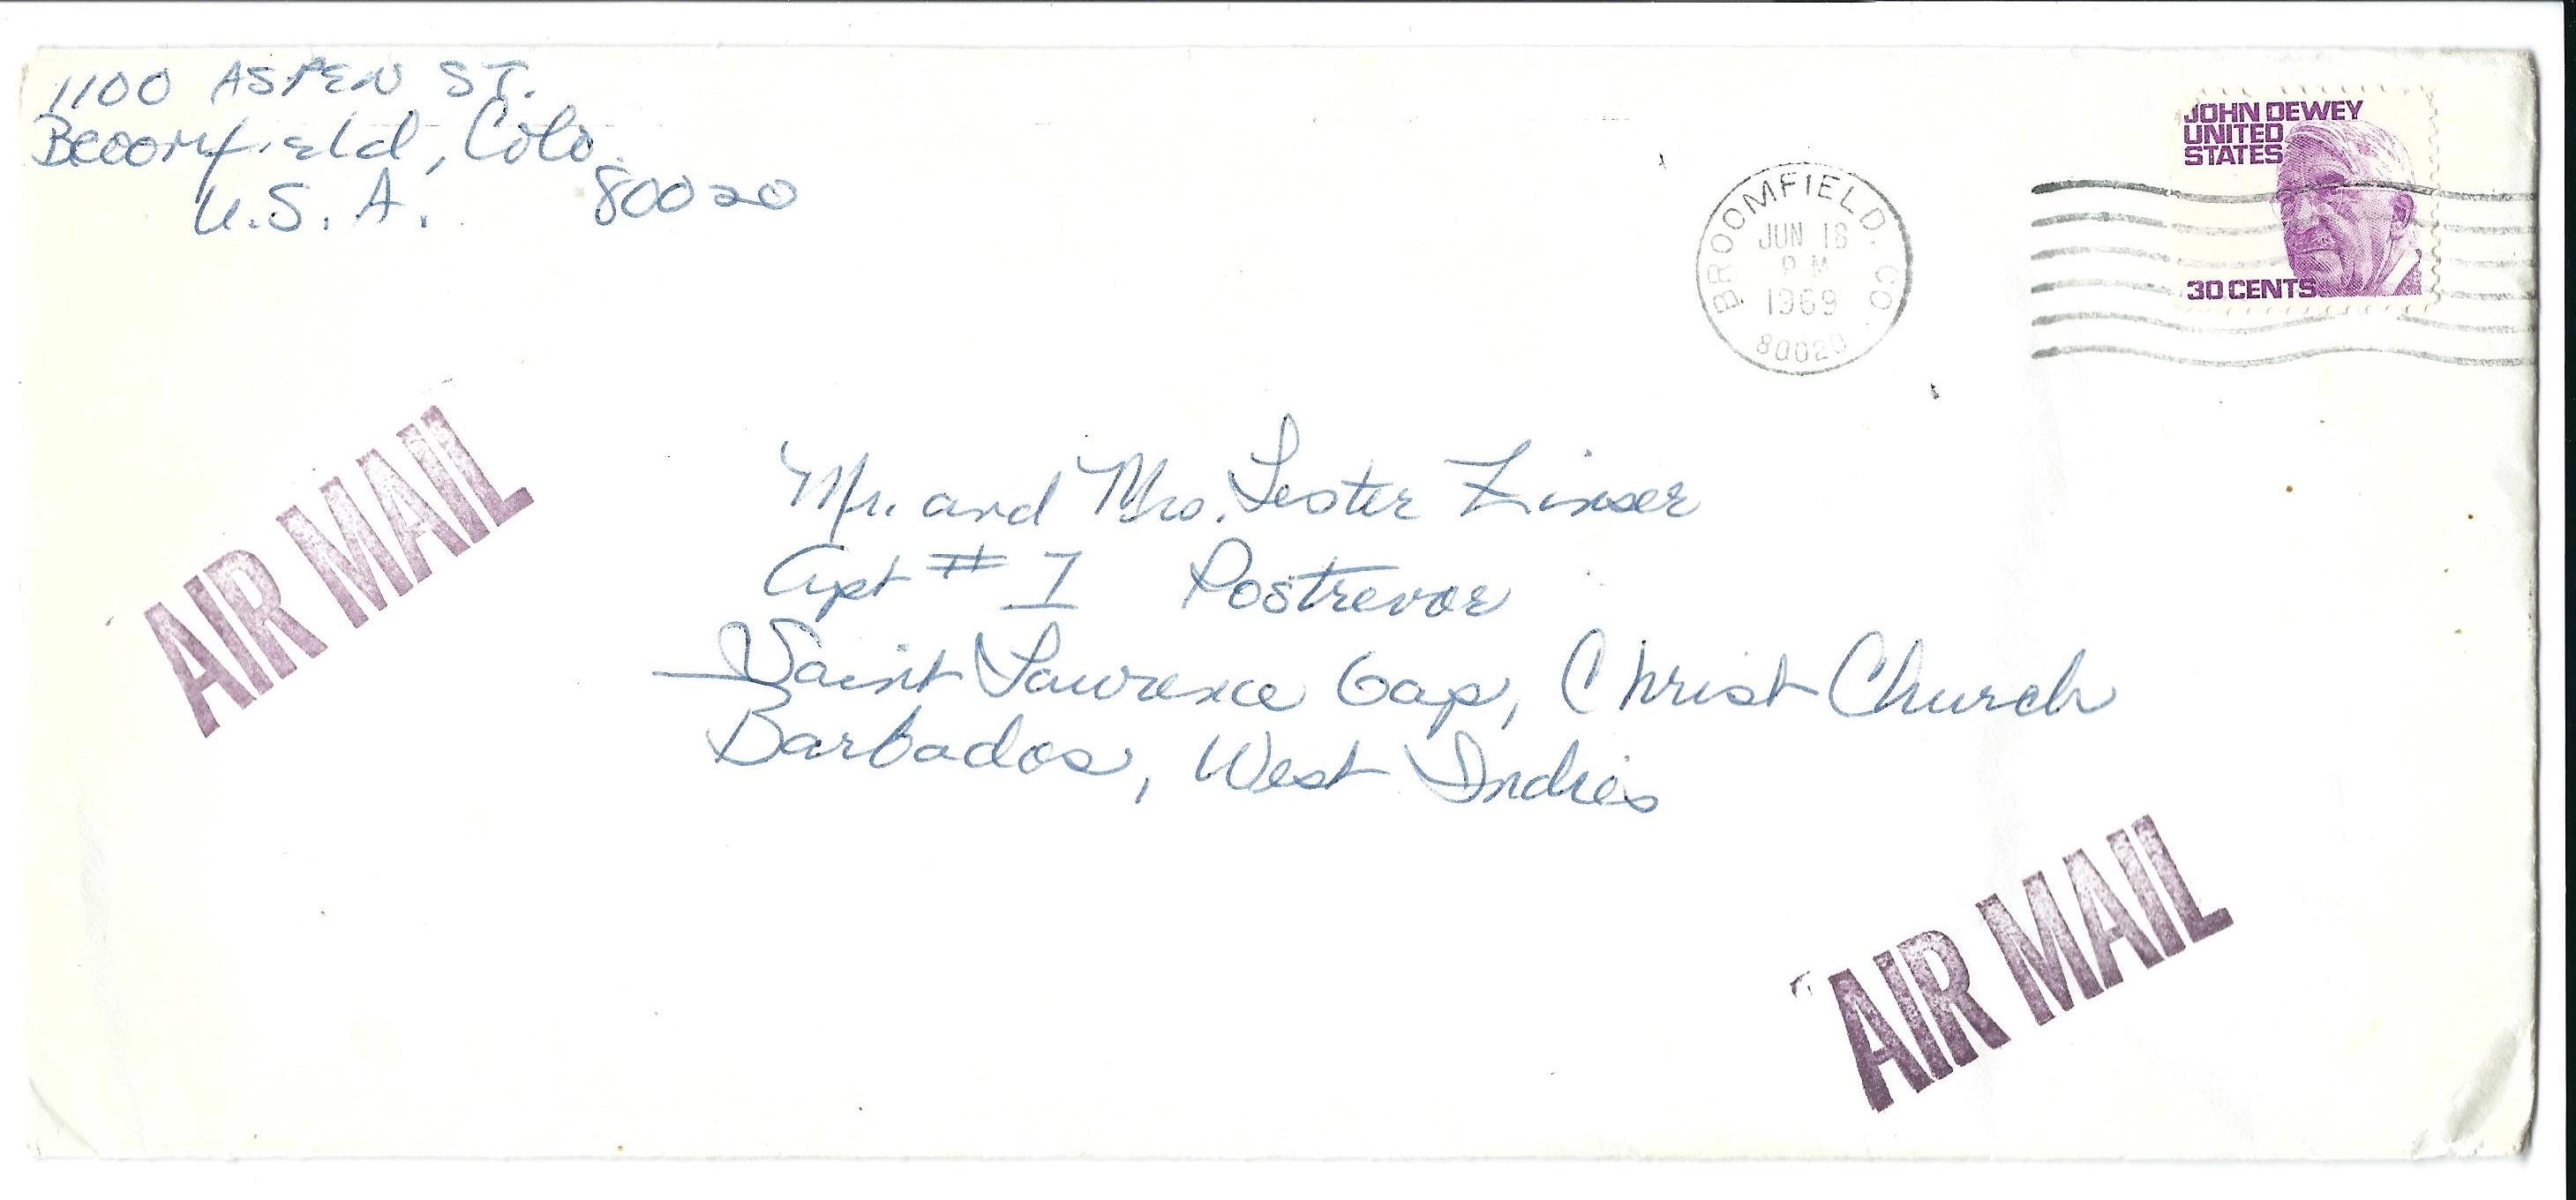 1100 ASPEN ST.
Broomfield, Colo.
80020
U.S.A.
JOHN DEWEY
UNITED
STATES
30 CENTS
BROOMFIELD, CO.
JUN 18
PM
1969
80020
AIR MAIL
Mr. and Mrs. Lester Zinser
Apt # 1 Rostrevor
Saint Lawrence Gap, Christ Church
Barbados, West Indies
AIR MAIL